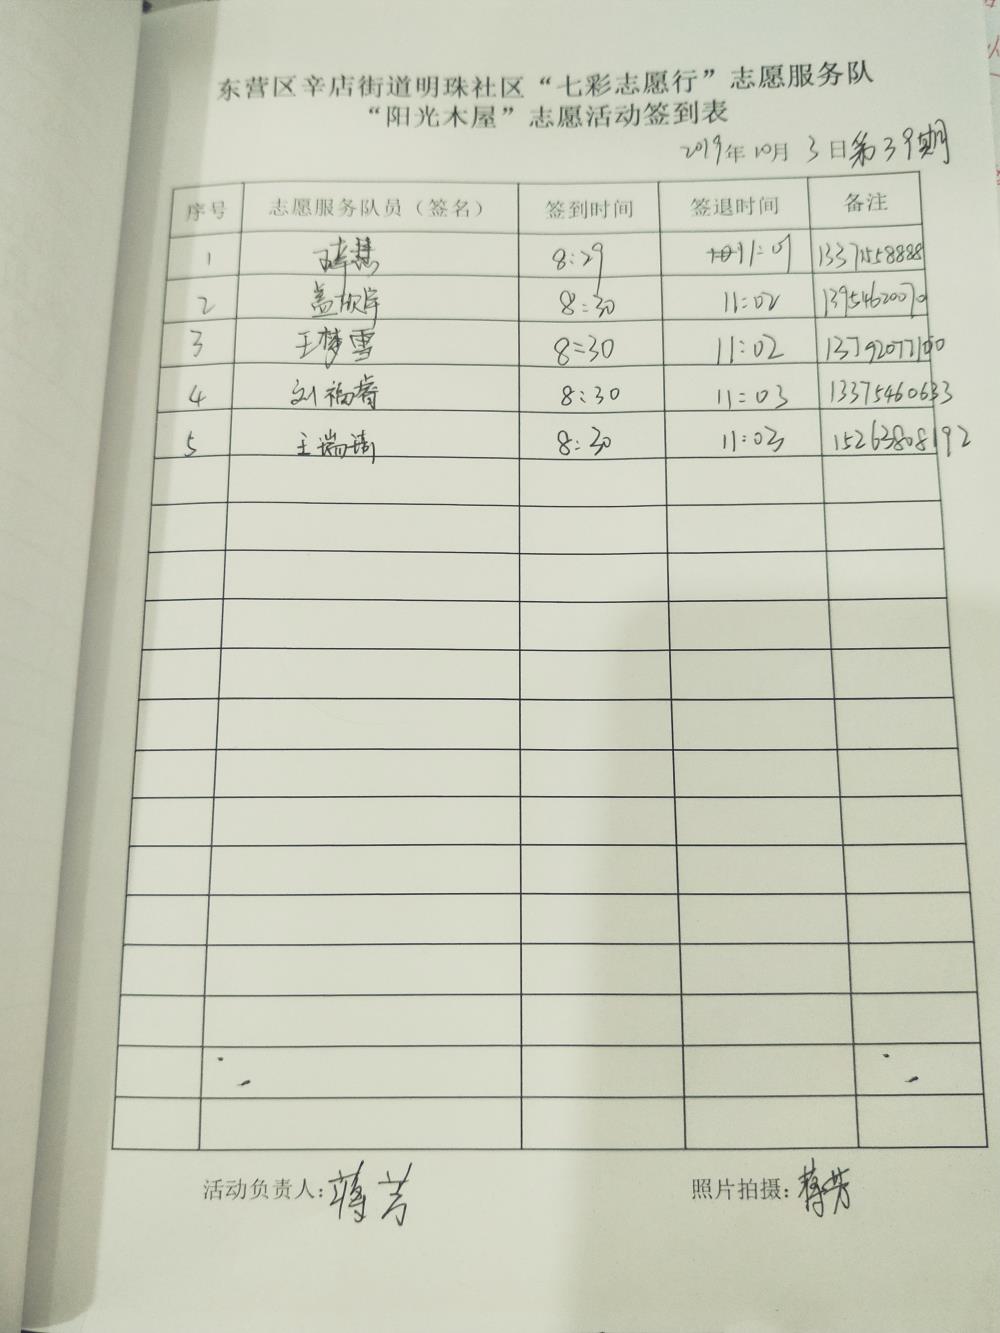 东营区辛店街道明珠社区“七彩志愿行”志愿服务队
“阳光木屋”志愿活动签到表
2019年10月3日第39期
序号 志愿服务队员（签名） 签到时间 签退时间 备注
1 8:29 11:01
2 8:30 11:02 13954620070
3 王梦雪 8:30 11:02
4 刘福睿 8:30 11:03 13375460633
5 王瑞 8:30 11:03 15263808192
活动负责人：蒋芳
照片拍摄：蒋芳